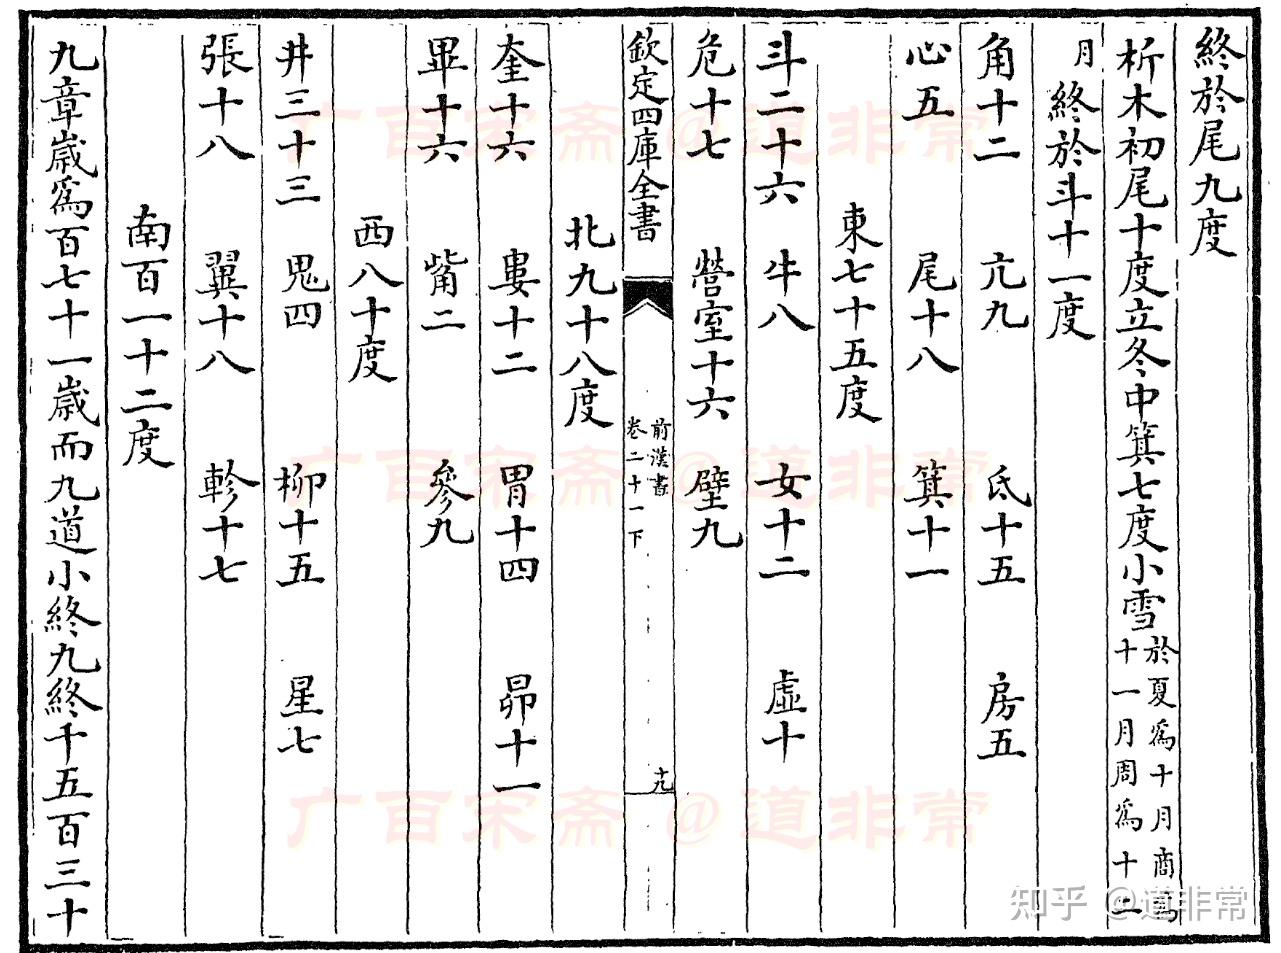 終於尾九度
析木初尾十度立冬中箕七度小雪
於夏爲十月商爲
十一月周爲十二
月
終於斗十一度
角十二 亢九 氐十五 房五
心五 尾十八 箕十一
東七十五度
斗二十六 牛八 女十二 虛十
危十七 營室十六 壁九
欽定四庫全書
前漢書
卷二十一下
十九
北九十八度
奎十六 婁十二 胃十四 昴十一
畢十六 觜二 參九
西八十度
井三十三 鬼四 柳十五 星七
張十八 翼十八 軫十七
南百一十二度
九章歲爲百七十一歲而九道小終九終千五百三十
广百宋斋 @道非常
广百宋斋 @道非常
广百宋斋 @道非常
知乎 @道非常